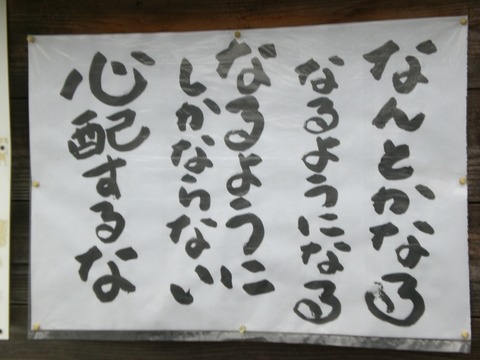 なんとかなる
なるようになる
なるように
しかならない
心配するな